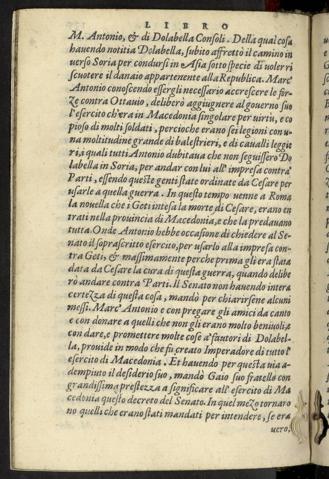 LIBRO
M. Antonio, & di Dolabella Consoli. Della qual cosa
hauendo notitia Dolabella, subito affrettò il camino in
uerso Soria per condursi in Asia sotto specie di uoler ri
scuotere il danaio appartenente alla Republica. Marc'
Antonio conoscendo essergli necessario accrescere le for
ze contra Ottauio, deliberò aggiugnere al gouerno suo
l'esercito ch'era in Macedonia singolare per uirtù, e co
pioso di molti soldati, percioche erano sei legioni con u-
na moltitudine grande di balestrieri, e di caualli leggie
ri, a quali tutti Antonio dubitaua che non seguissero Do
labella in Soria, per andar con lui all'impresa contra
Parti, essendo queste genti state ordinate da Cesare per
usarle a quella guerra. In questo tempo uenne a Roma
la nouella che i Geti intesa la morte di Cesare, erano en
trati nella prouincia di Macedonia, e che la predauano
tutta. Onde Antonio hebbe occasione di chiedere al Se-
nato il soprascritto esercito, per usarlo alla impresa con-
tra Geti, & massimamente perche prima gli era stata
data da Cesare la cura di questa guerra, quando delibe
rò andare contra Parti. Il Senato non hauendo intera
certezza di questa cosa, mandò per chiarirsene alcuni
messi. Marc' Antonio e con pregare gli amici da canto
e con donare a quelli che non gli erano molto beniuoli, e
con dare, e promettere molte cose a' fautori di Dolabel-
la, prouide in modo che fu creato Imperadore di tutto l'
esercito di Macedonia. Et hauendo per questa uia a-
dempiuto il desiderio suo, mandò Gaio suo fratello con
grandissima prestezza a significare all'esercito di Ma
cedonia questo decreto del Senato. In quel mezo tornaro
no quelli che erano stati mandati per intendere, se era
uero,